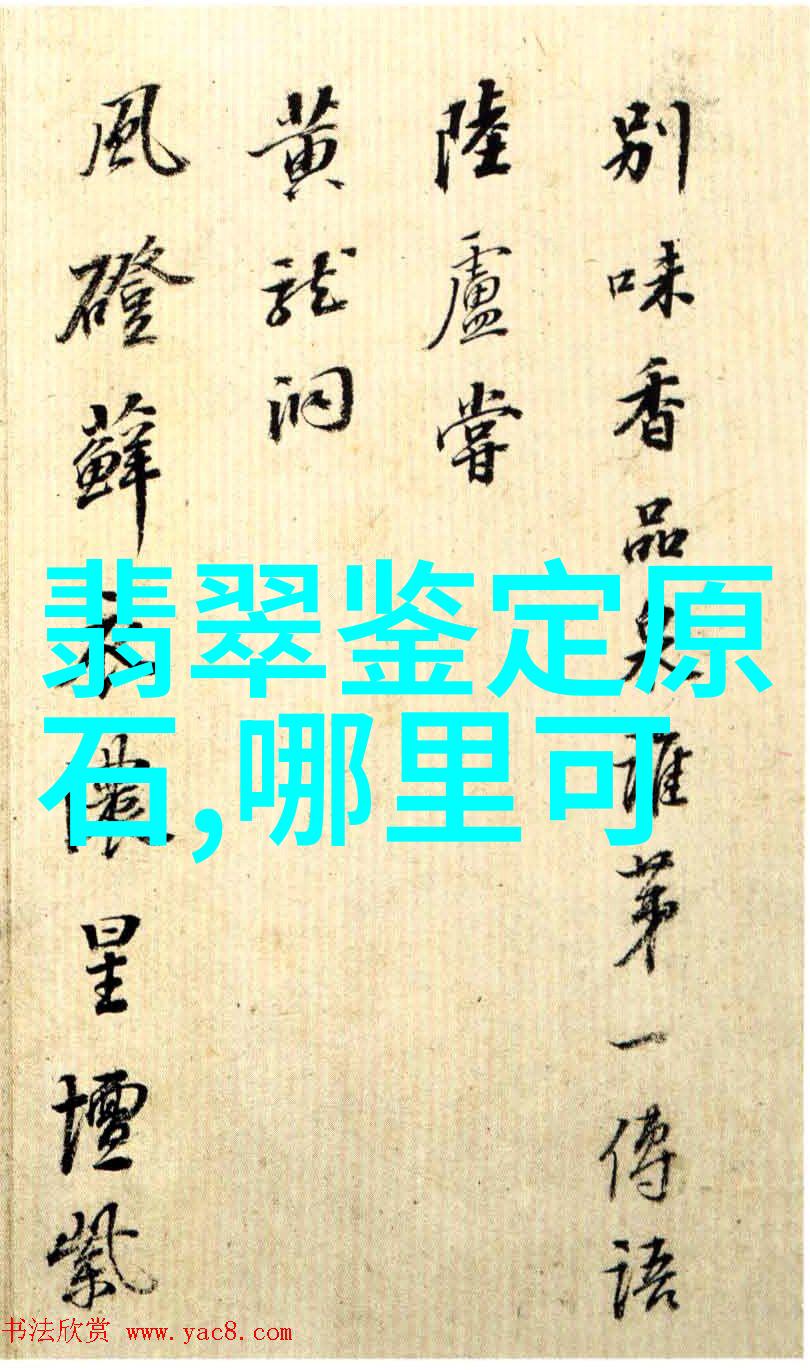 别味香品泉谁苐一傳語
陸盧嘗
黄龍洞
風磴蘚衣濃星壇紫
翡翠鉴定原
石,哪里可
书法欣赏 www.yac8.com